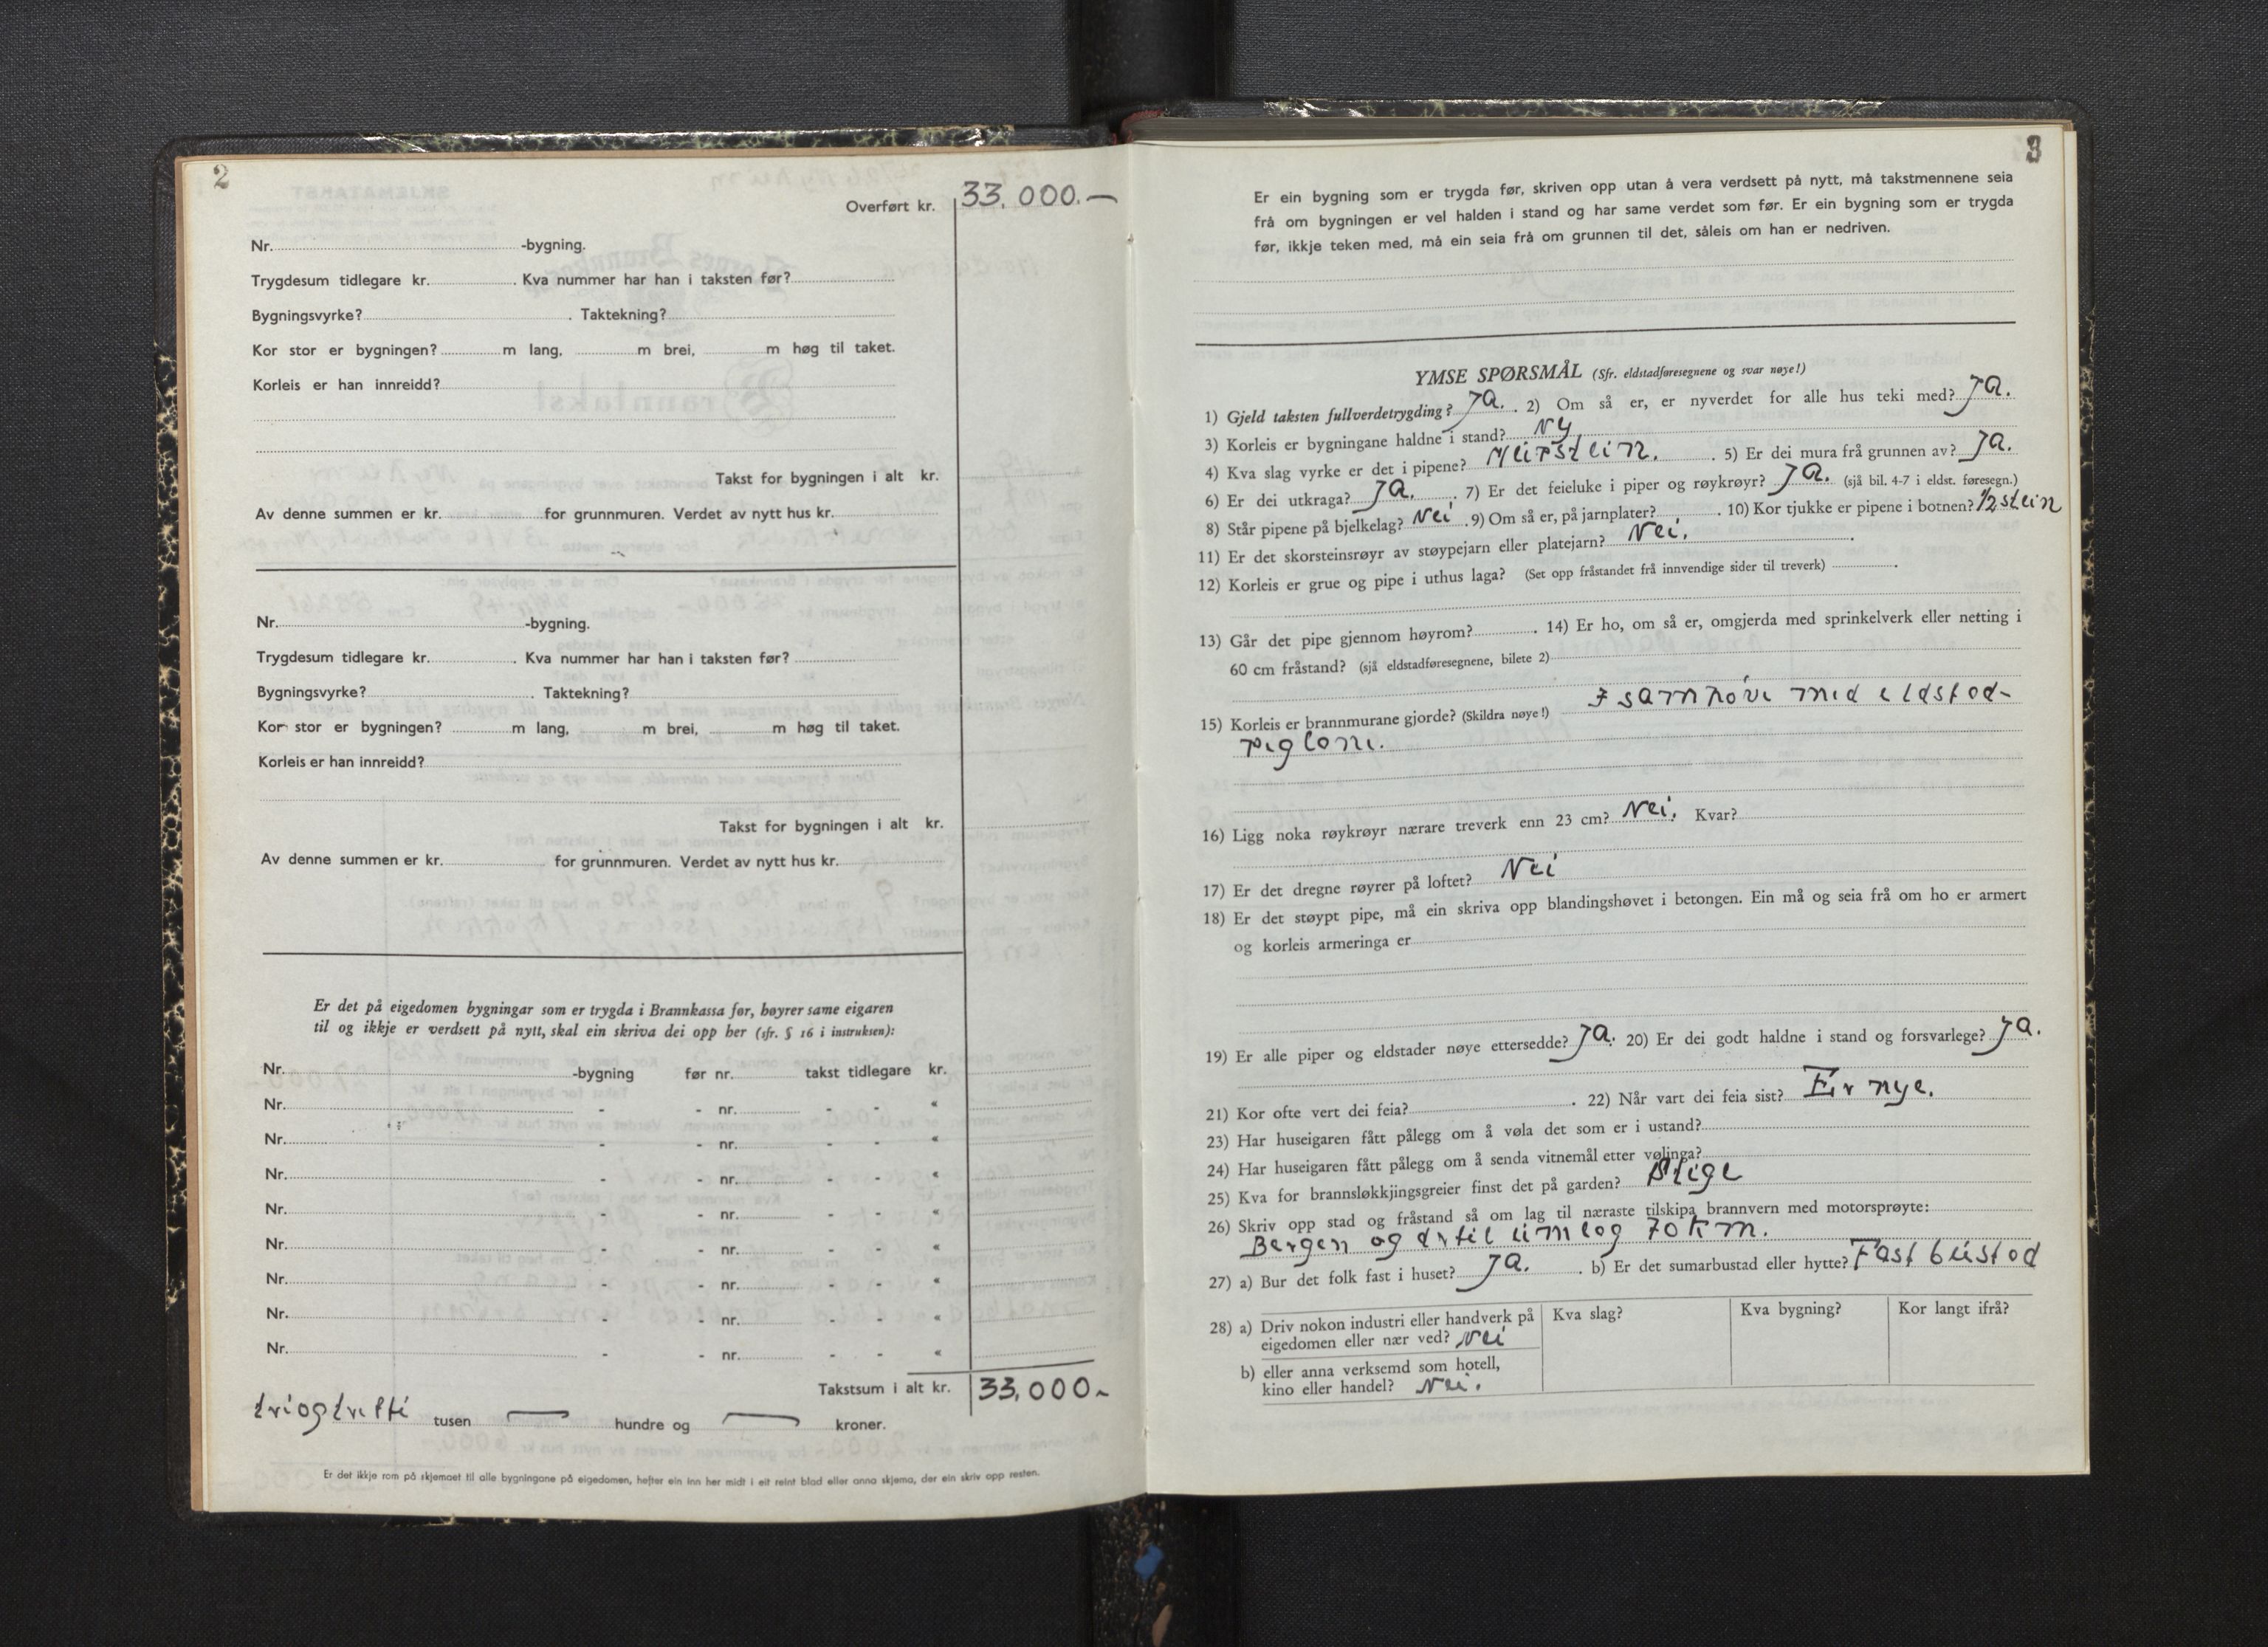 2
Overført kr. 33.000.—
Nr. -bygning.
Trygdesum tidlegare kr. . Kva nummer har han i taksten før?
Bygningsvyrke? . Taktekning?
Kor stor er bygningen? m lang, m brei, m høg til taket.
Korleis er han innreidd?
Takst for bygningen i alt kr.
Av denne summen er kr. for grunnmuren. Verdet av nytt hus kr.
Nr. -bygning.
Trygdesum tidlegare kr. . Kva nummer har han i taksten før?
Bygningsvyrke? . Taktekning?
Kor stor er bygningen? m lang, m brei, m høg til taket.
Korleis er han innreidd?
Takst for bygningen i alt kr.
Av denne summen er kr. for grunnmuren. Verdet av nytt hus kr.
Er det på eigedomen bygningar som er trygda i Brannkassa før, høyrer same eigaren
til og ikkje er verdsett på nytt, skal ein skriva dei opp her (sfr. § 16 i instruksen):
Nr. -bygning før nr. takst tidlegare kr.
Nr. - - nr. - - «
Nr. - - nr. - - «
Nr. - - nr. - - «
Nr. - - nr. - - «
Nr. - - nr. - - «
Nr. - - nr. - - «
Nr. - - nr. - - «
Nr. - - nr. - - «
Takstsum i alt kr. 33.000-
triogtretti tusen — hundre og — kroner.
Er det ikkje rom på skjemaet til alle bygningane på eigedomen, hefter ein inn her midt i eit reint blad eller anna skjema, der ein skriv opp resten.
3
Er ein bygning som er trygda før, skriven opp utan å vera verdsett på nytt, må takstmennene seia
frå om bygningen er vel halden i stand og har same verdet som før. Er ein bygning som er trygda
før, ikkje teken med, må ein seia frå om grunnen til det, såleis om han er nedriven.
YMSE SPØRSMÅL (Sfr. eldstadføresegnene og svar nøye!)
1) Gjeld taksten fullverdetrygding? Ja. . 2) Om så er, er nyverdet for alle hus teki med? Ja.
3) Korleis er bygningane haldne i stand? Ny
4) Kva slag vyrke er det i pipene? Murstein. . 5) Er dei mura frå grunnen av? Ja.
6) Er dei utkraga? Ja. . 7) Er det feieluke i piper og røykrøyr? Ja. (sjå bil. 4-7 i eldst. føresegn.)
8) Står pipene på bjelkelag? Nei . 9) Om så er, på jarnplater? . 10) Kor tjukke er pipene i botnen? 1/2 stein
11) Er det skorsteinsrøyr av støypejarn eller platejarn? Nei. .
12) Korleis er grue og pipe i uthus laga? (Set opp fråstandet frå innvendige sider til treverk) .
13) Går det pipe gjennom høyrom? . 14) Er ho, om så er, omgjerda med sprinkelverk eller netting i
60 cm fråstand? (sjå eldstadføresegnene, bilete 2)
15) Korleis er brannmurane gjorde? (Skildra nøye!) I samhøve med eldstad-
reglane.
16) Ligg noka røykrøyr nærare treverk enn 23 cm? Nei. Kvar?
17) Er det dregne røyrer på loftet? Nei
18) Er det støypt pipe, må ein skriva opp blandingshøvet i betongen. Ein må og seia frå om ho er armert
og korleis armeringa er
19) Er alle piper og eldstader nøye ettersedde? Ja. 20) Er dei godt haldne i stand og forsvarlege? Ja.
21) Kor ofte vert dei feia? . 22) Når vart dei feia sist? Er nye.
23) Har huseigaren fått pålegg om å vøla det som er i ustand?
24) Har huseigaren fått pålegg om å senda vitnemål etter vølinga?
25) Kva for brannsløkkjingsgreier finst det på garden? Stige
26) Skriv opp stad og fråstand så om lag til næraste tilskipa brannvern med motorsprøyte:
Bergen og er til umlag 70 km.
27) a) Bur det folk fast i huset? Ja. . b) Er det sumarbustad eller hytte? Fast bustad
28) a) Driv nokon industri eller handverk på
eigedomen eller nær ved? Nei
Kva slag?
Kva bygning?
Kor langt ifrå?
b) eller anna verksemd som hotell,
kino eller handel? Nei.